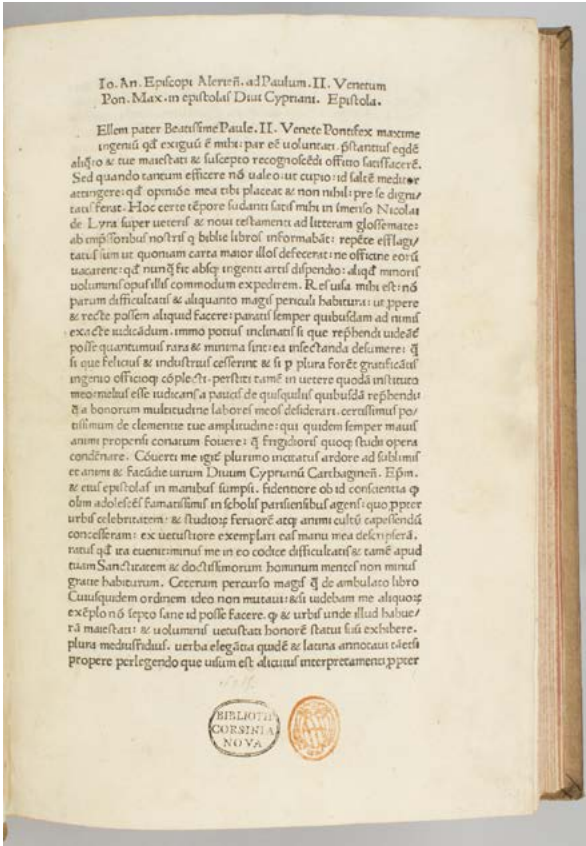 Io. An. Episcopi Alerieñ. ad Paulum. II. Venetum
Pon. Max. in epistolas Diui Cypriani. Epistola.
Ellem pater Beatissime Paule. II. Venete Pontifex maxime
ingeniū qđ exiguū ē mihi: par eē uoluntati. p̄stantius eqdē
aliq̄ro & tue maiestati & suscepto recognoscēdi offitio satisfacerē.
Sed quando tantum efficere nō ualeo: ut cupio: id saltē meditor
attingere: qđ opinioē mea tibi placeat & non nihil: pre se digni/
tatis ferat. Hoc certe tēpore sudanti satis mihi in imenso Nicolai
de Lyra super ueteris & noui testamenti ad litteram glossemate:
ab imp̄ssoribus nostris q biblie libros informabāt: repēte efflagi/
tatus sum ut quoniam carta maior illos defecerat: ne officine eorū
uacarent: qđ nunq̄ fit absq; ingenti artis dispendio: aliqđ minoris
uoluminis opus illis commodum expedirem. Res uisa mihi est: nō
parum difficultatis & aliquanto magis periculi habitura: ut ꝓpere
& recte possem aliquid facere: paratis semper quibusdam ad nimis
exacte iudicādum. immo potius inclinatis si que rep̄hendi uideāt
posse quantumuis rara & minima sint: ea insectanda desumere: q̄
si que felicius & industrius cesserint & si ꝓ plura forēt gratificātis
ingenio officioq; cōplecti. perstiti tamē in uetere quodā instituto
meo: melius esse iudicans a paucis de quisquiliis quibusdā rep̄hendi
q̄ a bonorum multitudine labores meos desiderari. certissimus po/
tissimum de clementie tue amplitudine: qui quidem semper mauis
animi propensi conatum fouere: q̄ frigidioris quoq; studii opera
condēnare. Cōuerti me igit plurimo incitatus ardore ad sublimis
et animi & facūdie uirum Diuum Cyprianū Carthagineñ. Ep̄m.
& eius epistolas in manibus sumpsi. fidentiore ob id conscientia ꝙ
olim adolescēs famatissimis in scholis parisiensibus agens: quo ꝓpter
urbis celebritatem: & studioꝝ feruorē atq; animi cultū capessendū
concesseram: ex uetustiore exemplari eas manu mea descripserā.
ratus qđ ita euenit: minus me in eo codice difficultatis & tamē apud
tuam Sanctitatem & doctissimorum hominum mentes non minus
gratie habiturum. Ceterum percurso magis q̄ de ambulato libro
Cuiusquidem ordinem ideo non mutaui: &si uidebam me aliquoꝝ
exēplo nō septo sane id posse facere. ꝙ & urbis unde illud habue/
rā maiestati: & uoluminis uetustati honorē statui suū exhibere.
plura mediusfidius. uerba elegātia quidē & latina annotaui tāetsi
propere perlegendo que uisum est alicuius interpretamenti ꝓpter
BIBLIOTH
CORSINIA
NOVA